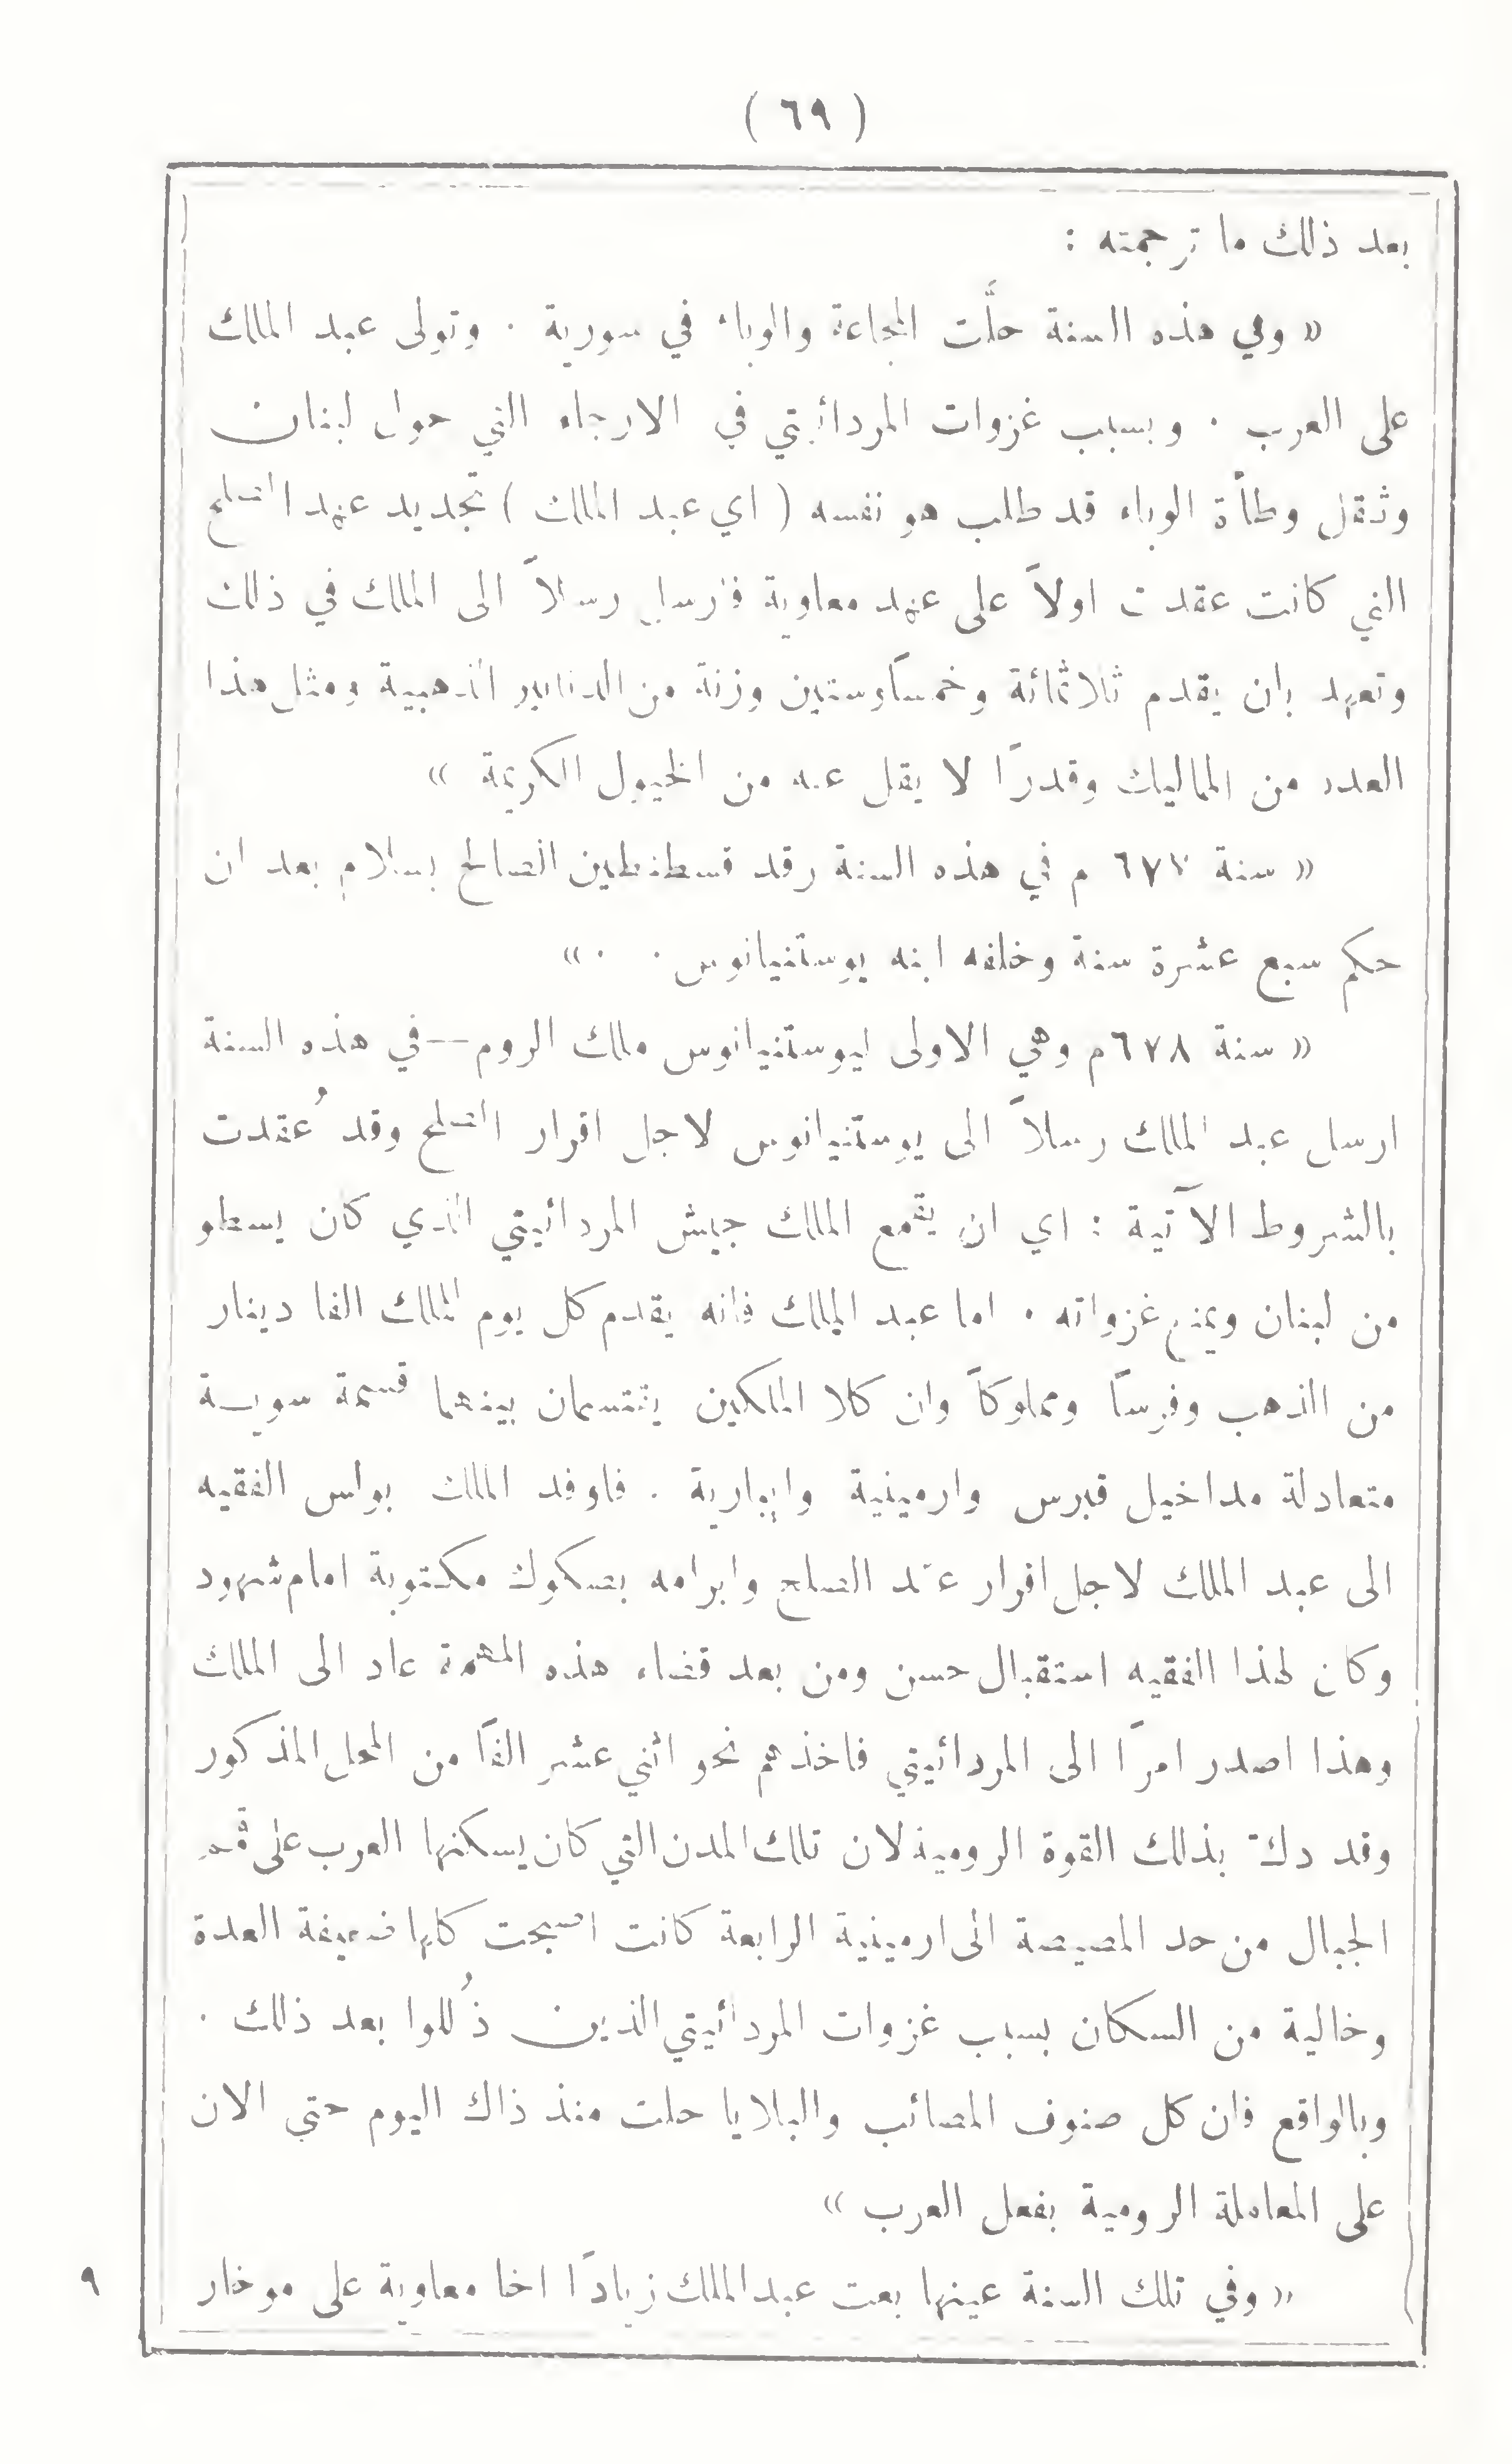 ( ٦٩ )
بعد ذلك ما ترجمته :
« وفي هذه السنة حلَّت المجاعة والوباء في سورية . وتولى عبد الملك
على العرب . وبسبب غزوات المردائيتي في الارجاء التي حول لبنان
وثقل وطأة الوباء قد طلب هو نفسه ( اي عبد الملك ) تجديد عهد الصلح
التي كانت عقدت اولاً على عهد معاوية فارسل رسلاً الى الملك في ذلك
وتعهد بان يقدم ثلاثمائة وخمساً وستين وزنة من الدنانير الذهبية ومثل هذا
العدد من المماليك وقدرًا لا يقل عنه من الخيول الكريمة »
« سنة ٦٧٧ م في هذه السنة رقد قسطنطين الصالح بسلام بعد ان
حكم سبع عشرة سنة وخلفه ابنه يوستنيانوس . . »
« سنة ٦٧٨ م وهي الاولى ليوستنيانوس ملك الروم — في هذه السنة
ارسل عبد الملك رسلاً الى يوستنيانوس لاجل اقرار الصلح وقد عُقدت
بالشروط الآتية : اي ان يقمع الملك جيش المردائيتي الذي كان يسطو
من لبنان ويمنع غزواته . اما عبد الملك فانه يقدم كل يوم للملك الفا دينار
من الذهب وفرساً ومملوكاً وان كلا الملكين يقتسمان بينهما قسمة سوية
متعادلة مداخيل قبرس وارمينية وايبارية . فاوفد الملك بولس الفقيه
الى عبد الملك لاجل اقرار عقد الصلح وابرامه بصكوك مكتوبة امام شهود
وكان لهذا الفقيه استقبال حسن ومن بعد قضاء هذه المهمة عاد الى الملك
وهذا اصدر امرًا الى المردائيتي فاخذهم نحو اثني عشر الفًا من المحل المذكور
وقد دكّ بذلك القوة الرومية لان تلك المدن التي كان يسكنها العرب على قمم
الجبال من حد المصيصة الى ارمينية الرابعة كانت اصبحت كلها ضعيفة العدة
وخالية من السكان بسبب غزوات المردائيتي الذين ذُللوا بعد ذلك .
وبالواقع فان كل صنوف المصائب والبلايا حلت منذ ذاك اليوم حتى الان
على المعاملة الرومية بفعل العرب »
« وفي تلك السنة عينها بعت عبد الملك زيادًا اخا معاوية على موخار
٩